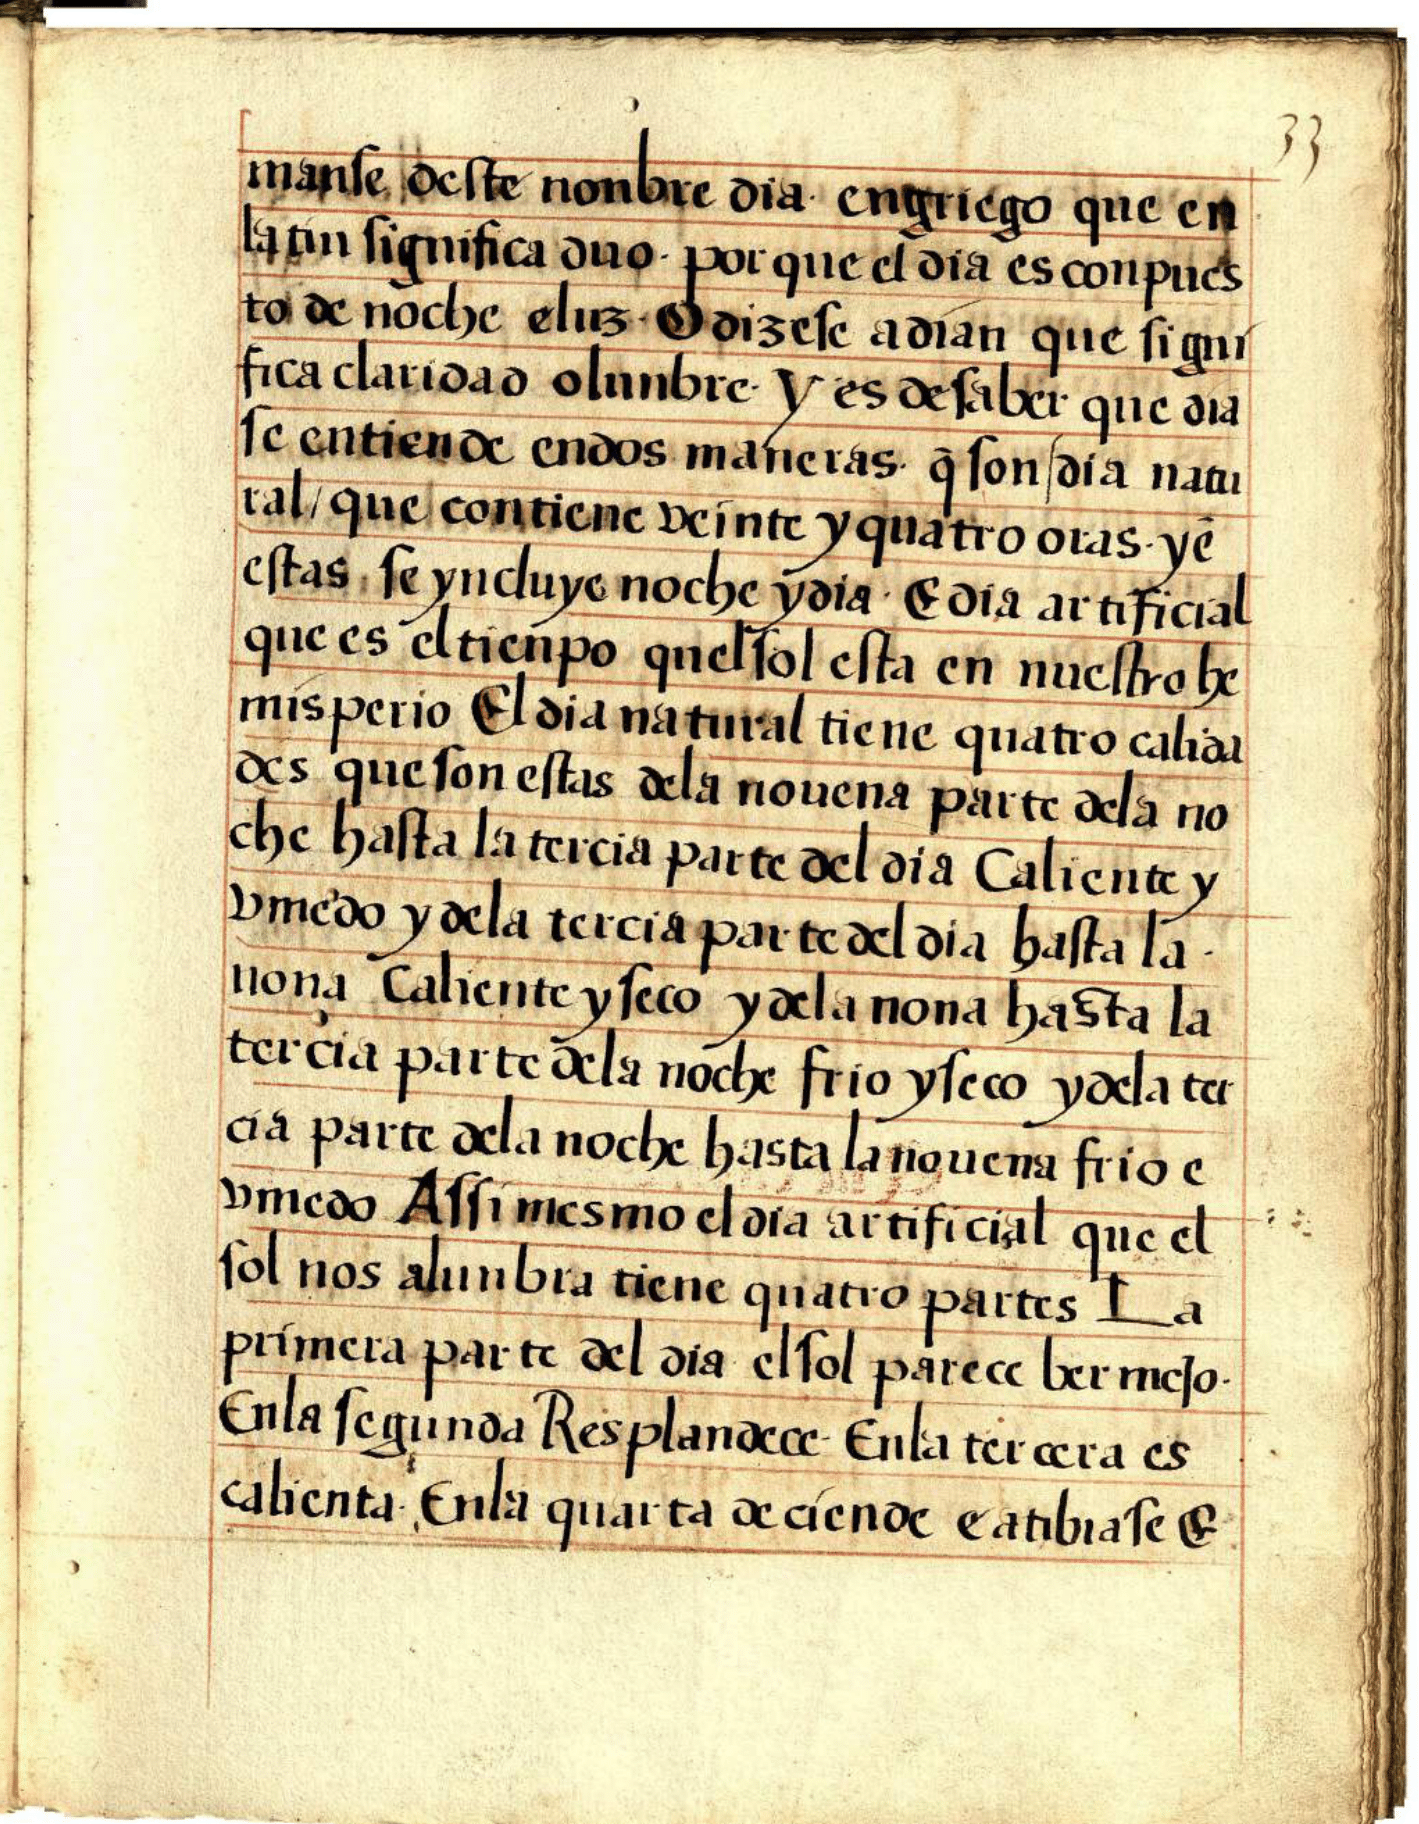 33
manse deste nonbre dia· engriego que en
latin significa duo· por que el dia es conpues
to de noche eluz· O dizese adian que signi
fica claridad olunbre· Y es desaber que dia
se entiende endos maneras· q̃ son/dia natu
ral/ que contiene veinte y quatro oras· y ẽ
estas se yncluye noche y dia· E dia artificial
que es el tienpo quel sol esta en nuestro he
misperio El dia natural tiene quatro calida
des que son estas dela nouena parte dela no
che hasta la tercia parte del dia Caliente y
vmedo y dela tercia parte del dia hasta la·
nona Caliente y seco y dela nona hasta la
tercia parte dela noche frio y seco y dela ter
cia parte dela noche hasta la nouena frio e
vmedo Assi mesmo el dia artificial que el
sol nos alunbra tiene quatro partes La
primera parte del dia el sol parece bermejo·
Enla segunda Resplandece· Enla tercera es
calienta· Enla quarta deciende e atibiase E